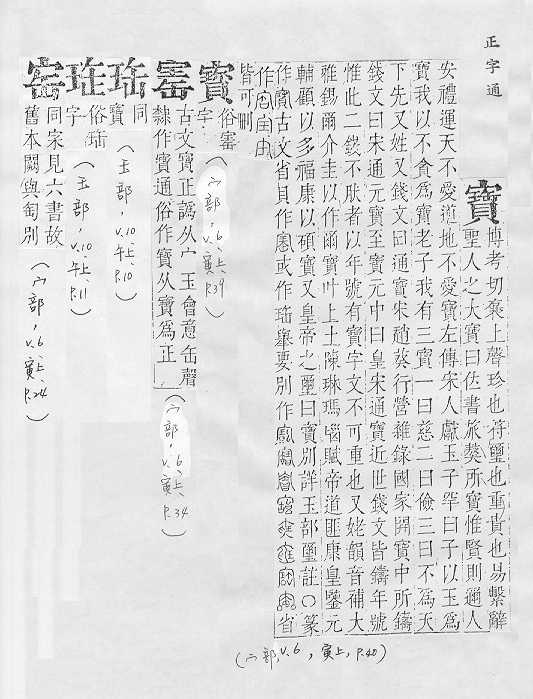 正字通
寶
博考切襃上聲珍也符璽也重貴也易繫辭
聖人之大寶曰位書旅獒所寶惟賢則邇人
安禮運天不愛道地不愛寶左傳宋人獻玉子罕曰子以玉爲
寶我以不貪爲寶老子我有三寶一曰慈二曰儉三曰不爲天
下先又姓又錢文曰通寶宋趙葵行營雜錄國家開寶中所鑄
錢文曰宋通元寶至寶元中曰皇宋通寶近世錢文皆鑄年號
惟此二錢不朕者以年號有寶字文不可重也又姥韻音補大
雅錫爾介圭以作爾寶叶上土陳琳瑪瑙賦帝道匪康皇鑒元
輔顧以多福康以碩寶又皇帝之璽曰寶別詳玉部璽註○篆
作寳古文省貝作寚或作珤舉要別作
省
作
皆可删
(宀部, v.6, 寅上, p.40)
寳
俗寶
字
(宀部, v.6, 寅上, p.39)
寚
古文寶正譌从宀玉會意缶聲
隸作寶通俗作寳从寶爲正
(宀部, v.6, 寅上, p.34)
珤
同
寶
(玉部, v.10, 午上, p.10)
俗珤
字
(玉部, v.10, 午上, p.11)
同宲見六書故
舊本闕與匋別
(宀部, v.6, 寅上, p.24)